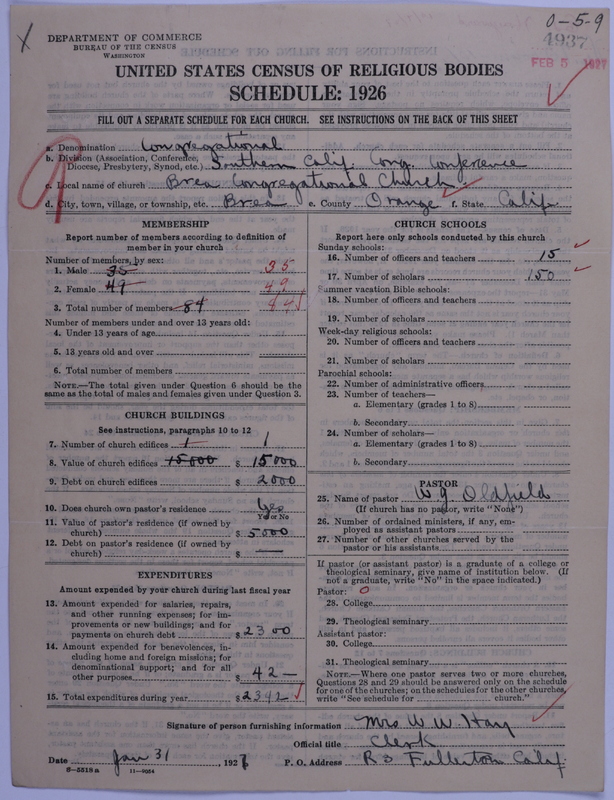 0-5-9
4937
FEB 5 1927
DEPARTMENT OF COMMERCE
BUREAU OF THE CENSUS
WASHINGTON
UNITED STATES CENSUS OF RELIGIOUS BODIES
SCHEDULE: 1926
FILL OUT A SEPARATE SCHEDULE FOR EACH CHURCH. SEE INSTRUCTIONS ON THE BACK OF THIS SHEET
a. Denomination Congregational
b. Division (Association, Conference, Diocese, Presbytery, Synod, etc.) Southern Calif. Cong. Conference
c. Local name of church Brea Congregational Church
d. City, town, village, or township, etc. Brea e. County Orange f. State Calif.
MEMBERSHIP
Report number of members according to definition of
member in your church
Number of members, by sex:
1. Male 35 35
2. Female 49 49
3. Total number of members 84 84
Number of members under and over 13 years old:
4. Under 13 years of age
5. 13 years old and over
6. Total number of members
NOTE.—The total given under Question 6 should be the
same as the total of males and females given under Question 3.
CHURCH BUILDINGS
See instructions, paragraphs 10 to 12
7. Number of church edifices 1 1
8. Value of church edifices 15000 $ 15000
9. Debt on church edifices $ 2000
10. Does church own pastor's residence Yes
Yes or No
11. Value of pastor's residence (if owned by
church) $ 5000
12. Debt on pastor's residence (if owned by
church) $ —
EXPENDITURES
Amount expended by your church during last fiscal year
13. Amount expended for salaries, repairs,
and other running expenses; for im-
provements or new buildings; and for
payments on church debt $ 2300
14. Amount expended for benevolences, in-
cluding home and foreign missions; for
denominational support; and for all
other purposes $ 42 —
15. Total expenditures during year $ 2342
CHURCH SCHOOLS
Report here only schools conducted by this church
Sunday schools:
16. Number of officers and teachers 15
17. Number of scholars 150
Summer vacation Bible schools:
18. Number of officers and teachers
19. Number of scholars
Week-day religious schools:
20. Number of officers and teachers
21. Number of scholars
Parochial schools:
22. Number of administrative officers
23. Number of teachers—
a. Elementary (grades 1 to 8)
b. Secondary
24. Number of scholars—
a. Elementary (grades 1 to 8)
b. Secondary
PASTOR
25. Name of pastor W J. Oldfield
(If church has no pastor, write "None")
26. Number of ordained ministers, if any, em-
ployed as assistant pastors
27. Number of other churches served by the
pastor or his assistants
If pastor (or assistant pastor) is a graduate of a college or
theological seminary, give name of institution below. (If
not a graduate, write "No" in the space indicated.)
Pastor: 0
28. College
29. Theological seminary
Assistant pastor:
30. College
31. Theological seminary
NOTE.—Where one pastor serves two or more churches,
Questions 28 and 29 should be answered only on the schedule
for one of the churches; on the schedules for the other churches,
write "See schedule for church."
Signature of person furnishing information Mrs W. W. Hay
Official title Clerk
Date Jan 31, 1927 P. O. Address R 3 Fullerton Calif.
8-5518 a 11-9054